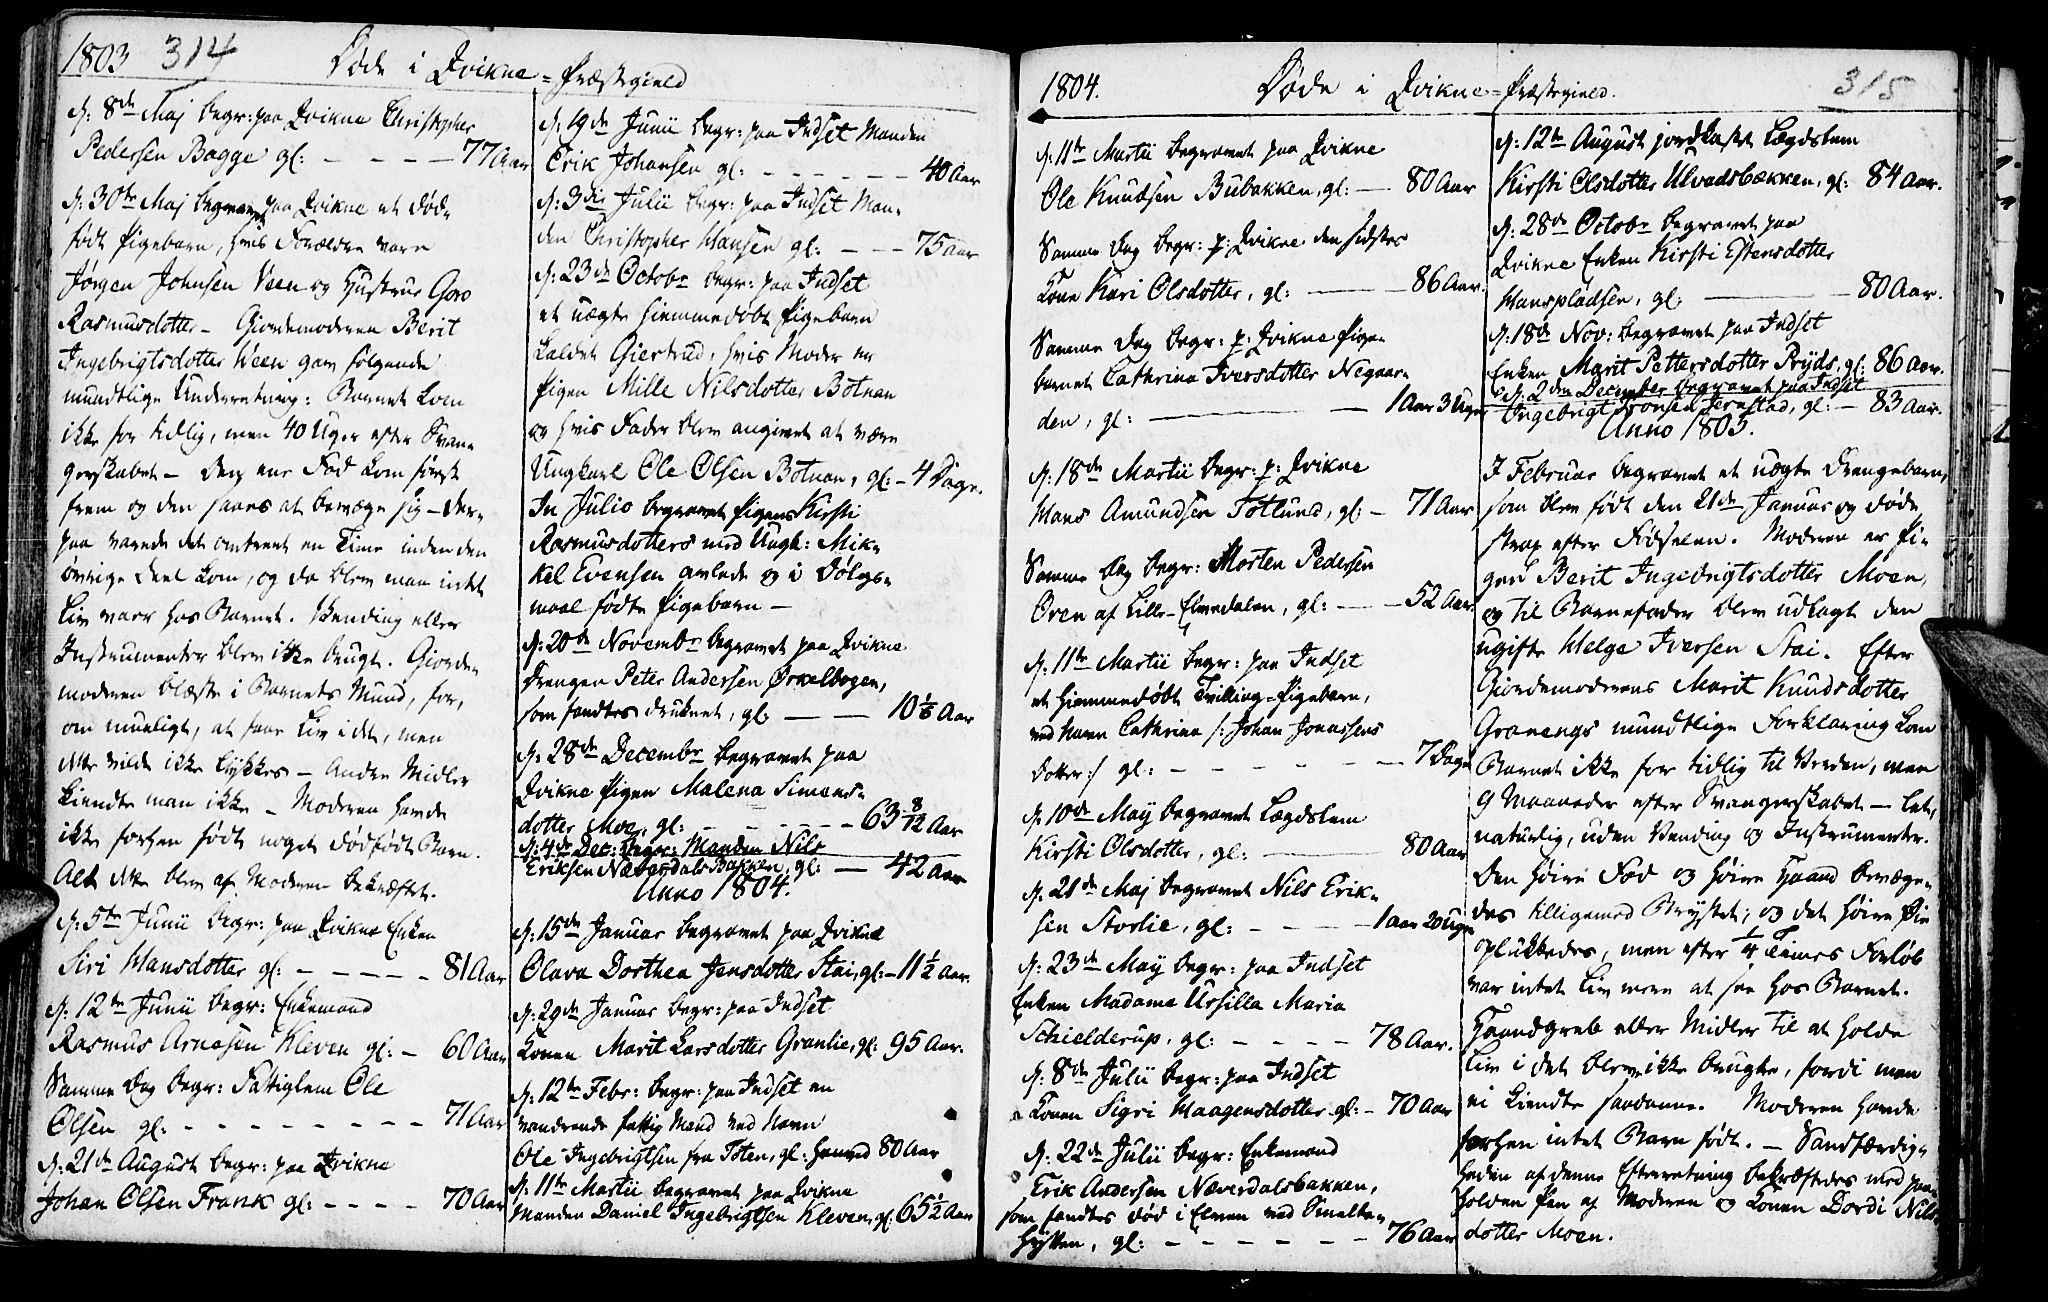 1803 314
Døde i Qvikne = Præstegield
d: 8de Maj begr: paa Qvikne Christopher
Pedersen Bagge gl: - - - - 77 Aar
d: 30te Maj begravet paa Qvikne et død-
født Pigebarn, hvis Forældre vare
Jørgen Johnsen Veen og Hustrue Goro
Rasmusdotter - Giordemoderen Berit
Ingebrigtsdotter Ween gav følgende
mundtlige Underretning: Barnet kom
ikke for tidlig, men 40 Uger efter Svan-
gerskabet - Den ene Fod kom først
frem og den saaes at bevæge sig - Der-
paa varede det omtrent en Time inden den
øvrige Deel kom, og da blev man intet
Liv vaer hos Barnet. Vending eller
Instrumenter blev ikke brugt. Giorde-
moderen blæste i Barnets Mund, for,
om mueligt, at faae Liv i det, men
dette vilde ikke lykkes - Anden Midler
kiendte man ikke - Moderen havde
ikke forhen født noget dødfødt Barn.
Alt dette blev af Moderen bekræftet.
d: 5te Junii begr: paa Qvikne Enken
Siri Hansdotter gl: - - - - - 81 Aar
d: 12te Junii begr: Enkemand
Rasmus Arnesen Kleven gl: - 60 Aar
Samme Dag begr: Fattiglem Ole
Olsen gl: - - - - - - - - - 71 Aar
d: 21de August begr: paa Qvikne
Johan Olsen Frank gl: - - - - 70 Aar
d: 19de Junii begr: paa Indset Manden
Erik Johansen gl: - - - - - - 40 Aar
d: 3die Julii begr: paa Indset Man-
den Christopher Hansen gl: - - - 75 Aar
d: 23de Octobr begr: paa Indset
et uægte hiemmedøbt Pigebarn
kaldet Giertrud, hvis Moder er
Pigen Mille Nilsdotter Botnan
og hvis Fader blev angivet at være
Ungkarl Ole Olsen Botnan, gl: - 4 Dage.
In Julio begravet Pigens Kirsti
Rasmusdotters med Ungk: Mik-
kel Evensen avlede og i Dølgs-
maal fødte Pigebarn -
d: 20de Novembr begravet paa Qvikne
Drengen Peter Andersen Ørkelbogen,
som fandtes druknet, gl: - - - 10 1/6 Aar
d: 28de Decembr begravet paa
Qvikne Pigen Malena Simens-
dotter Moe, gl: - - - - - - 63 8/12 Aar
d: 4de Dec: begr: Manden Nils
Eriksen Næverdalsbakken, gl: - 42 Aar
Anno 1804.
d: 15de Januar begravet paa Qvikne
Olava Dorthea Jensdotter Stai, gl: - 11 1/2 Aar.
d: 29de Januar begr: paa Indset
Konen Marit Larsdotter Granlie, gl: 95 Aar.
d: 12te Febr: begr: paa Indset en
vandrende fattig Mand ved Navn
Ole Ingebrigtsen fra Toten, gl: henved 80 Aar
d: 11te Martii begravet paa Qvikne
Manden Daniel Ingebrigtsen Kleven, gl: 65 1/2 Aar
1804. Døde i Qvikne = Præstegield. 315
d: 11te Martii begravet paa Qvikne
Ole Knudsen Bubakken, gl: - 80 Aar
Samme Dag begr: p: Qvikne den sidstes
Kone Kari Olsdotter, gl: - 86 Aar.
Samme Dag begr: p: Qvikne Pige-
barnet Cathrina Iversdotter Negaar-
den, gl: - 1 Aar 3 Uger
d: 18de Martii begr: p: Qvikne
Hans Amundsen Totlund, gl: - 71 Aar
Samme Dag begr: Morten Pedersen
Oren af Lille-Elvedalen, gl: - - 52 Aar.
d: 11te Martii begr: paa Indset
et hiemmedøbt Tvilling-Pigebarn,
ved Navn Cathrina /: Johan Jonassens
Dotter :/ gl: - - - - - - - 7 Dage
d: 10de May begravet Lægdslem
Kirsti Olsdotter, gl: - 80 Aar
d: 21de Maj begravet Nils Erik-
sen Storlie, gl: - - - - 1 Aar 20 Uger
d: 23de May begr: paa Indset
Enken Madame Ursilla Maria
Schielderup, gl: - - - - 78 Aar.
d: 8de Julii begr: paa Indset
Konen Sigri Haagensdotter gl: - 70 Aar
d: 22de Julii begr: Enkemand
Erik Andersen Næverdalsbakken,
som fandtes død i Elven ved Smelte-
hytten, gl: - - - - - - 76 Aar
d: 12te August jordkastet Lægdslem
Kirsti Olsdotter Ulvadsbækken, gl: 84 Aar.
d: 28de Octobr begravet paa
Qvikne Enken Kirsti Estensdotter
Hanspladsen, gl: - 80 Aar.
d: 18de Nov: begravet paa Indset
Enken Marit Pettersdotter Pryds, gl: 86 Aar.
d: 2den December begravet paa Indset
Ingebrigt Tronsen Jernstad, gl: - 83 Aar.
Anno 1805.
I Februar begravet et uægte Drengebarn,
som blev født den 21de Januar og døde
strax efter Fødselen. Moderen er Pi-
gen Berit Ingebrigtsdotter Moen,
og til Barnefader blev udlagt den
ugifte Helge Iversen Stai. Efter
Giordemoderens Marit Knudsdotter
Granengs mundtlige Forklaring kom
Barnet ikke for tidlig til Verden, men
9 Maaneder efter Svangerskabet - let,
naturlig, uden Vending og Instrumenter.
Den høire Fod og høire Haand bevæge-
des tilligemed Brystet, og det høire Øie
oplukkedes, men efter 1/4 Times Forløb
var intet Liv mere at see hos Barnet.
Haandgreb eller Midler til at holde
Liv i det blev ikke brugte, fordi man
ei kiendte saadanne. Moderen havde
forhen intet Barn født. - Sandfærdig-
heden af denne Efterretning bekræftedes med paa-
holden Pen af Moderen og Konen Dordi Nils-
dotter Moen.